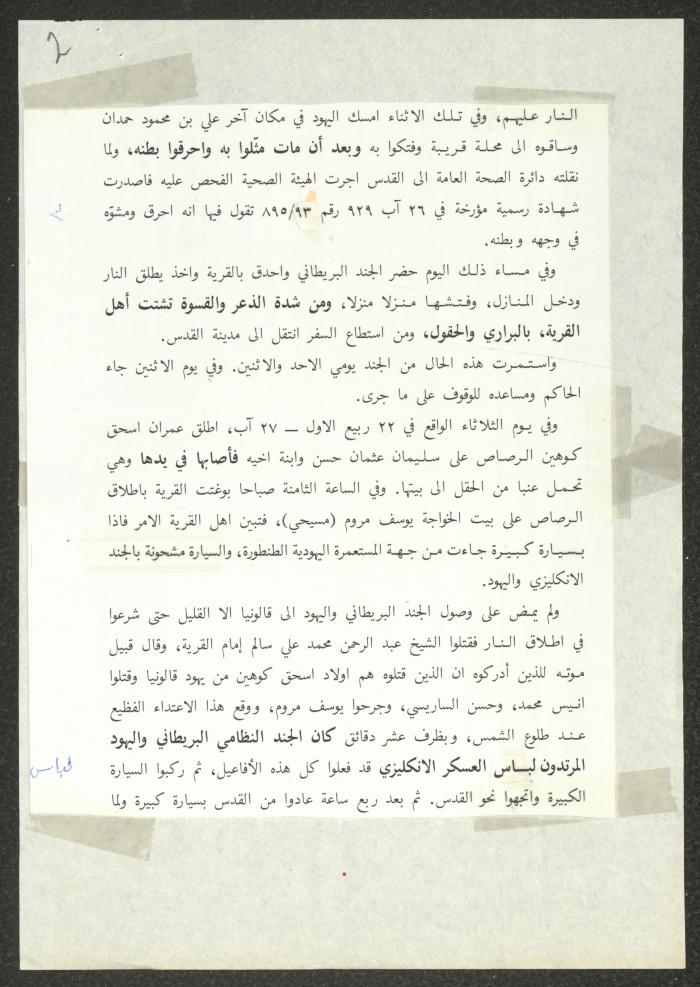 2
النار عليهم، وفي تلك الاثناء امسك اليهود في مكان آخر علي بن محمود حمدان
وساقوه الى محلة قريبة وفتكوا به وبعد أن مات مثّلوا به واحرقوا بطنه، ولما
نقلته دائرة الصحة العامة الى القدس اجرت الهيئة الصحية الفحص عليه فاصدرت
شهادة رسمية مؤرخة في ٢٦ آب ٩٢٩ رقم ٨٩٥/٩٣ تقول فيها انه احرق ومشوّه
في وجهه وبطنه.
وفي مساء ذلك اليوم حضر الجند البريطاني واحدق بالقرية واخذ يطلق النار
ودخل المنازل، وفتشها منزلا منزلا، ومن شدة الذعر والقسوة تشتت أهل
القرية، بالبراري والحقول، ومن استطاع السفر انتقل الى مدينة القدس.
واستمرت هذه الحال من الجند يومي الاحد والاثنين. وفي يوم الاثنين جاء
الحاكم ومساعده للوقوف على ما جرى.
وفي يوم الثلاثاء الواقع في ٢٢ ربيع الاول — ٢٧ آب، اطلق عمران اسحق
كوهين الرصاص على سليمان عثمان حسن وابنة اخيه فأصابها في يدها وهي
تحمل عنبا من الحقل الى بيتها. وفي الساعة الثامنة صباحا بوغتت القرية باطلاق
الرصاص على بيت الخواجة يوسف مروم (مسيحي)، فتبين اهل القرية الامر فاذا
بسيارة كبيرة جاءت من جهة المستعمرة اليهودية الطنطورة، والسيارة مشحونة بالجند
الانكليزي واليهود.
ولم يمض على وصول الجند البريطاني واليهود الى قالونيا الا القليل حتى شرعوا
في اطلاق النار فقتلوا الشيخ عبد الرحمن محمد علي سالم إمام القرية، وقال قبيل
موته للذين أدركوه ان الذين قتلوه هم اولاد اسحق كوهين من يهود قالونيا وقتلوا
انيس محمد، وحسن الساريسي، وجرحوا يوسف مروم، ووقع هذا الاعتداء الفظيع
عند طلوع الشمس، وبظرف عشر دقائق كان الجند النظامي البريطاني واليهود
المرتدون لباس العسكر الانكليزي قد فعلوا كل هذه الأفاعيل، ثم ركبوا السيارة
لباس
الكبيرة واتجهوا نحو القدس. ثم بعد ربع ساعة عادوا من القدس بسيارة كبيرة ولما